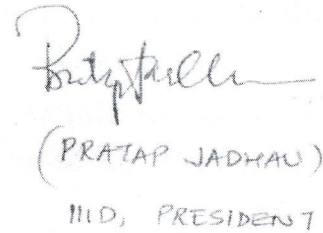 (PRATAP JADHAV)
IIID, PRESIDENT